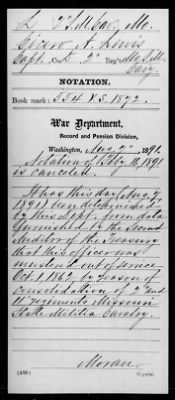 L 2 S.M. Cav., Mo.
Cicero A. Lewis
Capt., Co. L, 2 Reg't Mo. S.M.
Cavy.
NOTATION.
Book mark: 554 V.S. 1872.
War Department,
Record and Pension Division,
Washington, Aug 7, 1891.
Notation of Feby 10, 1891
is canceled.
It has this day (Aug 7
1891) been determined
by this Dept. from data
furnished by the Second
Auditor of the Treasury
that this officer was
mustered out of service
Oct 1 1862 by reason of
consolidation of 2" and
11" regiments Missouri
State Militia Cavalry.
Moran
(499) Copyist.